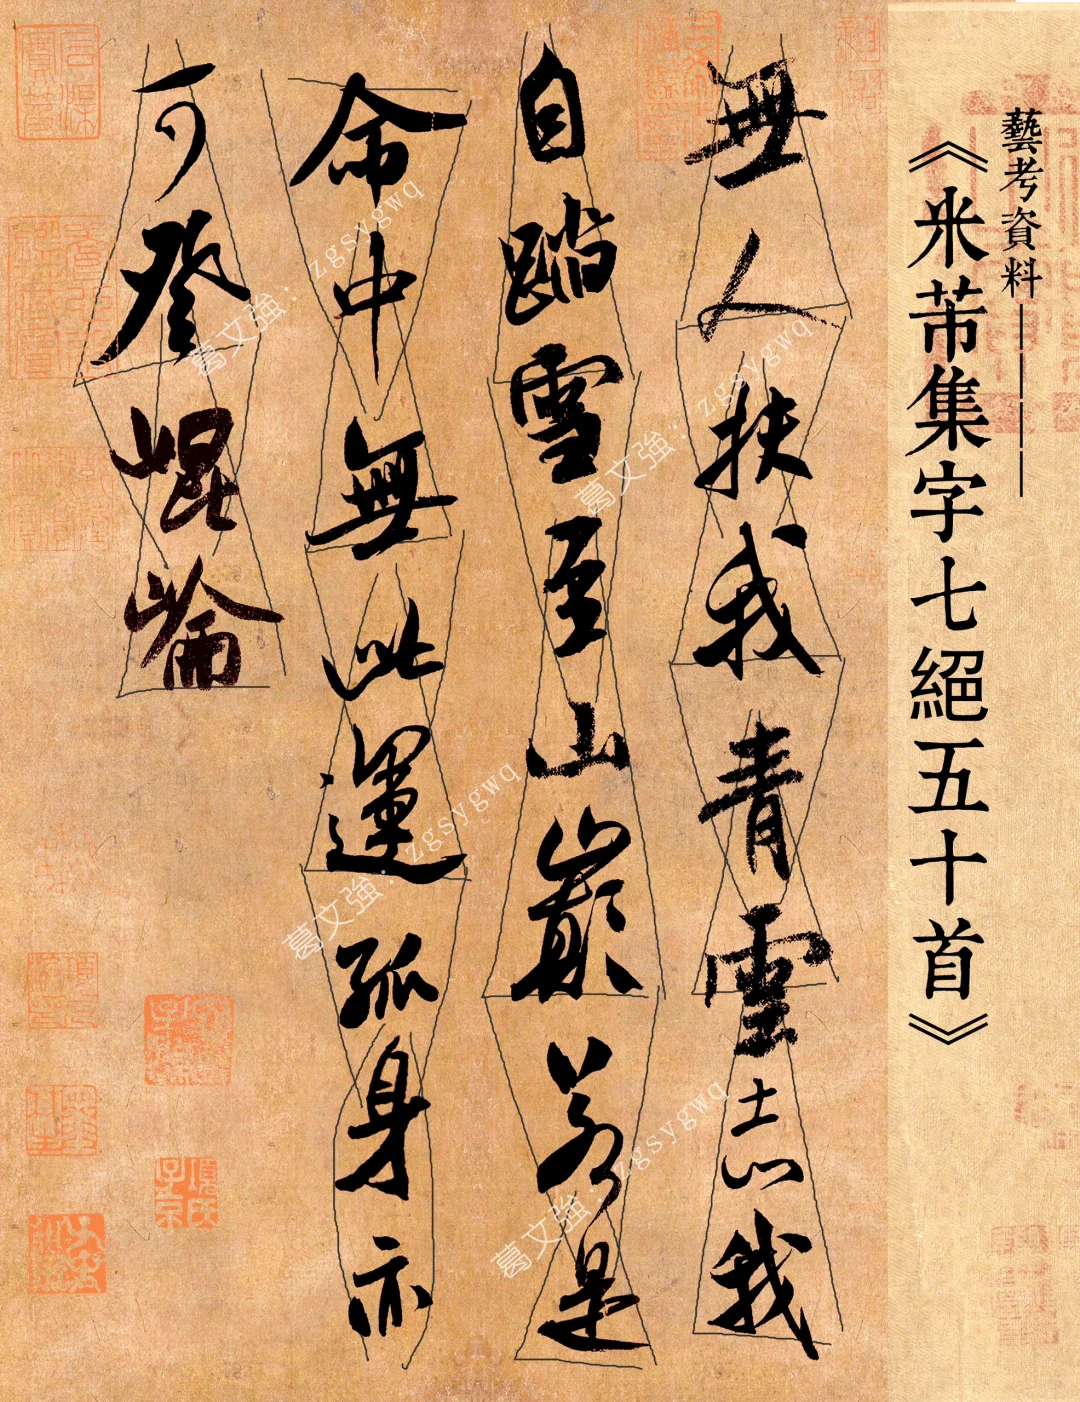 藝考資料————
《米芾集字七絕五十首》
無人扶我青雲志我
自踏雪至山巔若是
命中無此運孤身亦
可登崐崙
葛文強：zgsygwq
葛文強：zgsygwq
葛文強：zgsygwq
葛文強：zgsygwq